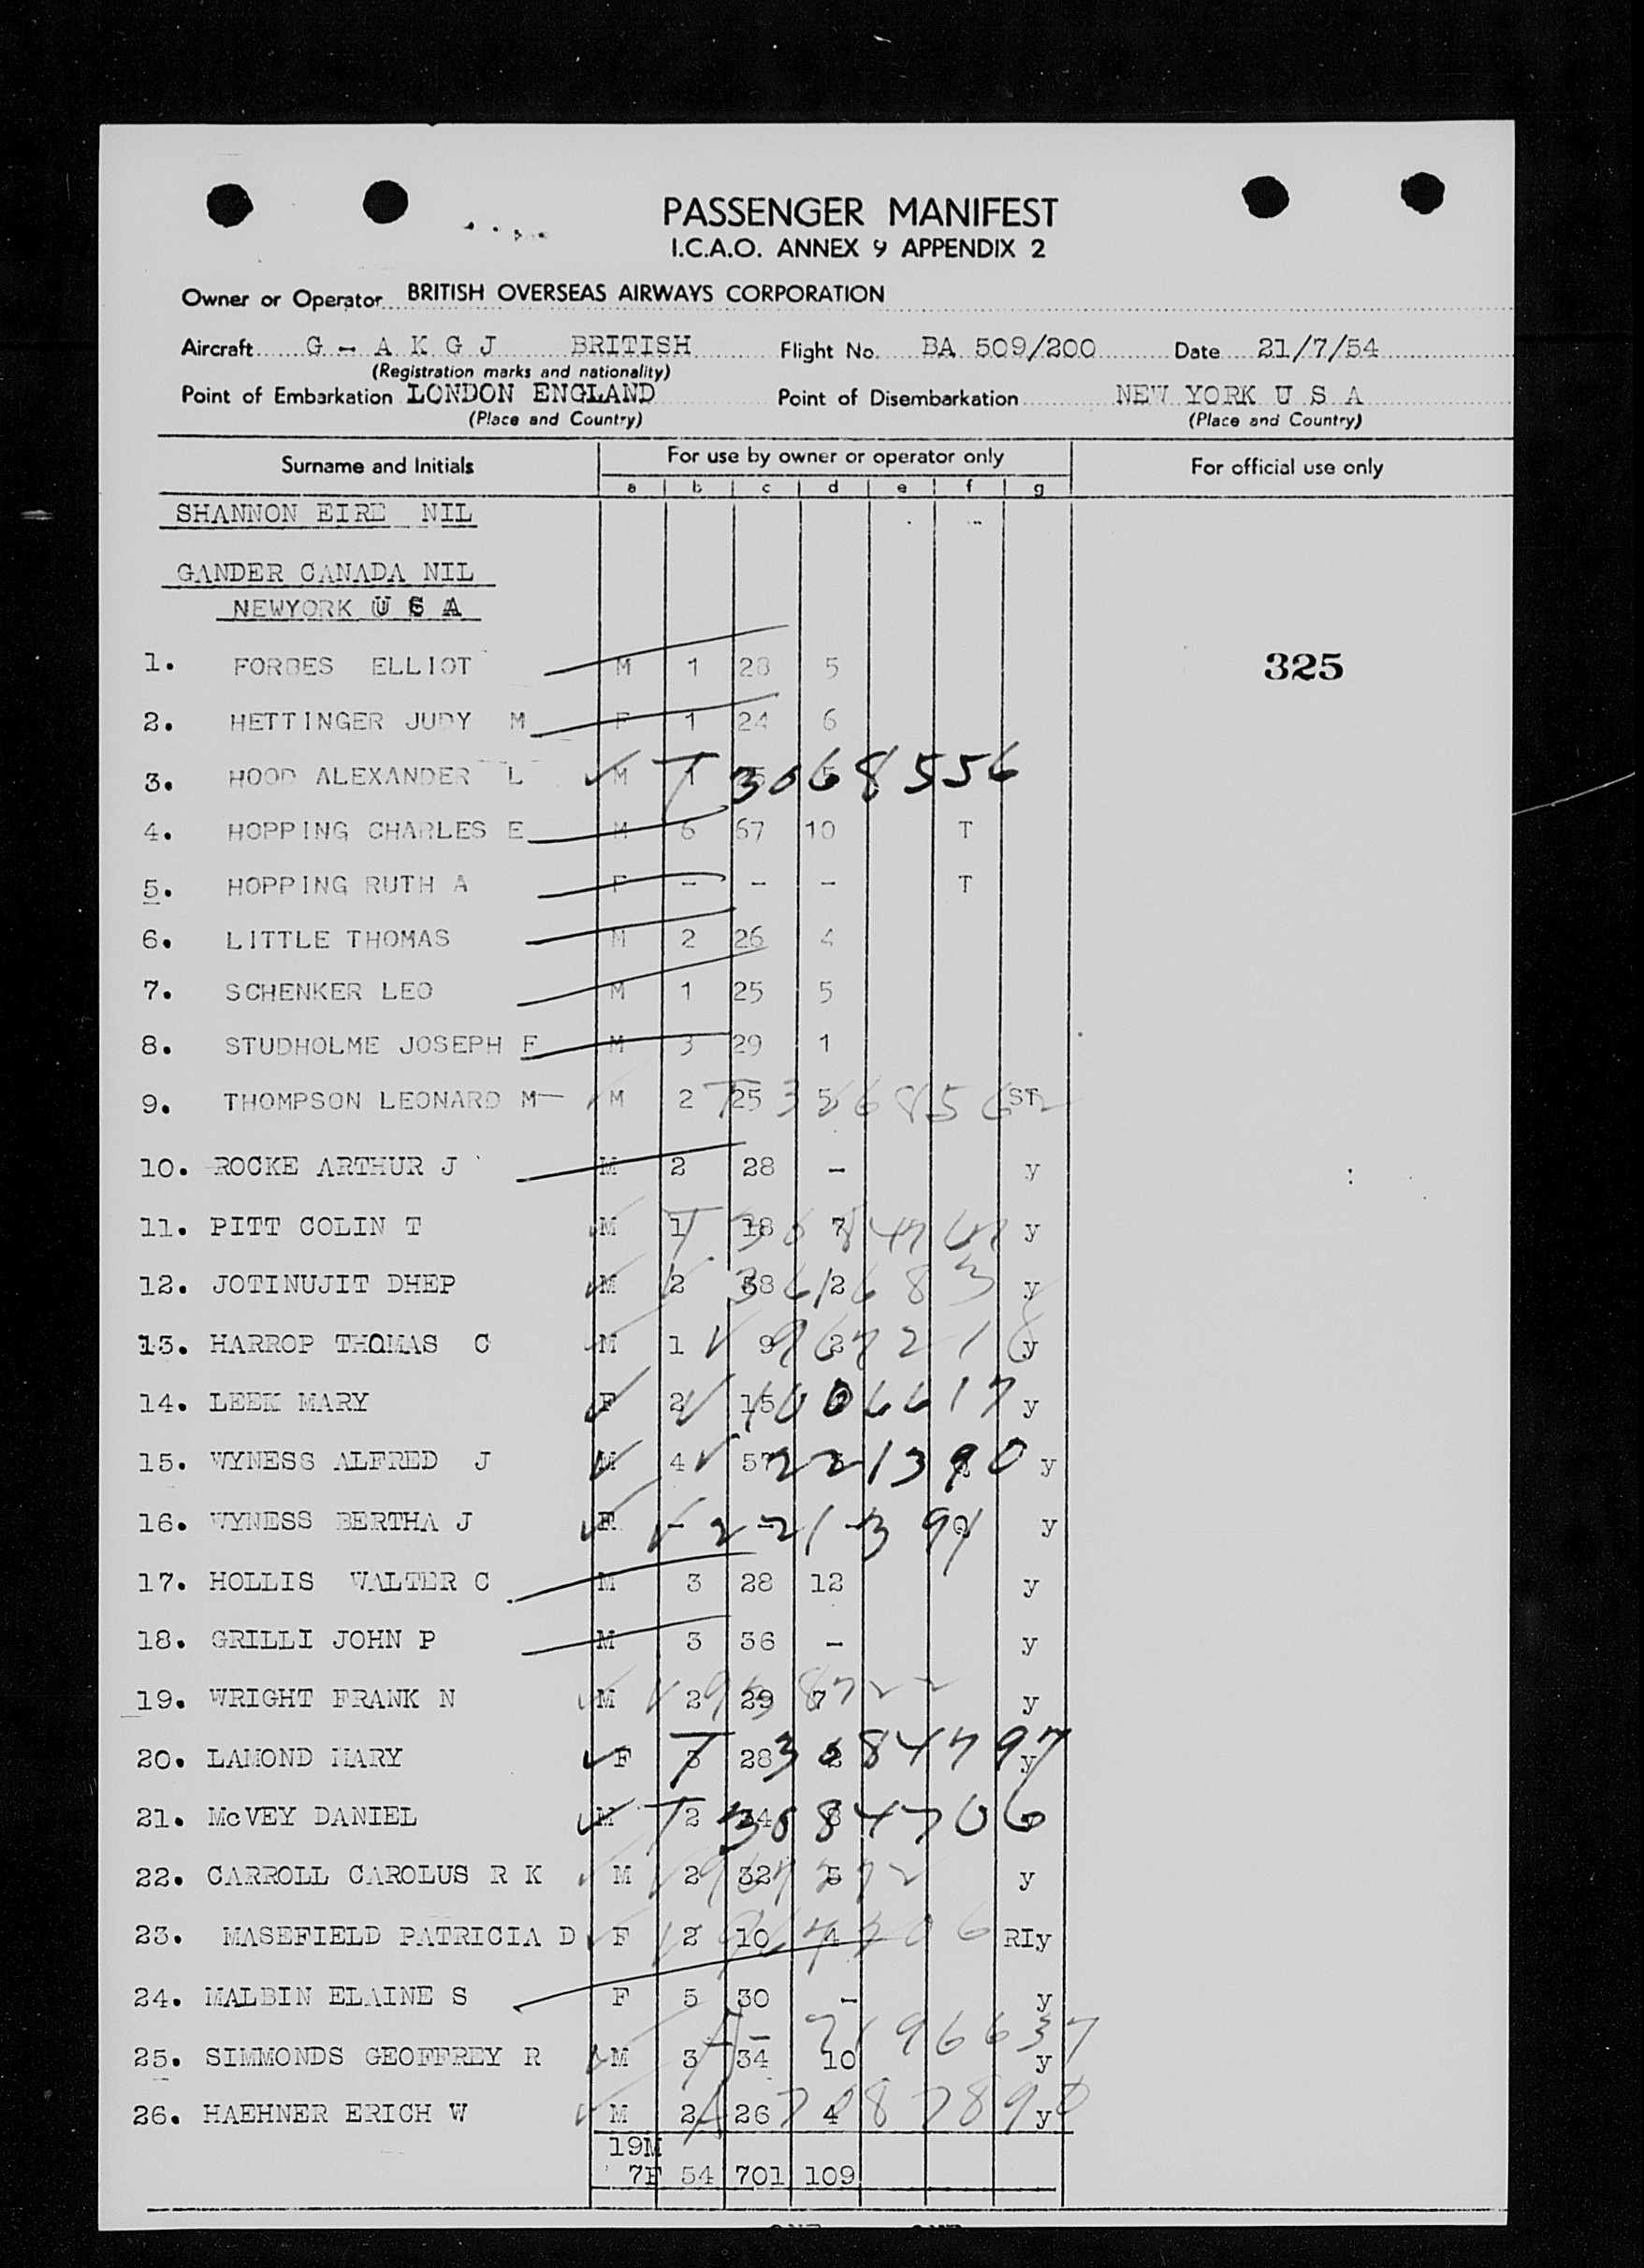 PASSENGER MANIFEST
I.C.A.O. ANNEX 9 APPENDIX 2
Owner or Operator BRITISH OVERSEAS AIRWAYS CORPORATION
Aircraft G - A K G J BRITISH Flight No. BA 509/200 Date 21/7/54
(Registration marks and nationality)
Point of Embarkation LONDON ENGLAND Point of Disembarkation NEW YORK U S A
(Place and Country) (Place and Country)
Surname and Initials For use by owner or operator only For official use only
a b c d e f g
SHANNON EIRE NIL
GANDER CANADA NIL
NEWYORK U S A
1. FORBES ELLIOT M 1 28 5 325
2. HETTINGER JUDY M F 1 24 6
3. HOOD ALEXANDER L M 1 T 3068556
4. HOPPING CHARLES E M 6 67 10 T
5. HOPPING RUTH A F - - - T
6. LITTLE THOMAS M 2 26 4
7. SCHENKER LEO M 1 25 5
8. STUDHOLME JOSEPH F M 3 29 1
9. THOMPSON LEONARD M M 2 25 5 ST
10. ROCKE ARTHUR J M 2 28 - y
11. PITT COLIN T M 1 18 7 y
12. JOTINUJIT DHEP M 2 2 y
13. HARROP THOMAS C M 1 9 2 y
14. LEEK MARY F 2 15 y
15. WYNESS ALFRED J M 4 57 V 221390 y
16. WYNESS BERTHA J F - - - V 221391 y
17. HOLLIS WALTER C M 3 28 12 y
18. GRILLI JOHN P M 3 36 - y
19. WRIGHT FRANK N M 2 29 7 y
20. LAMOND MARY F 3 28 2 T 3084797 y
21. McVEY DANIEL M 2 T 3084706
22. CARROLL CAROLUS R K M 2 32 5 y
23. MASEFIELD PATRICIA D F 2 10 4 RIy
24. MALBIN ELAINE S F 5 30 - y
25. SIMMONDS GEOFFREY R M 3 34 10 A-7196637 y
26. HAEHNER ERICH W M 2 26 4 A 7087890 y
19M
7F 54 701 109